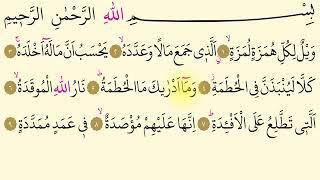 بِسْمِ اللهِ الرَّحْمٰنِ الرَّحِيمِ
وَيْلٌ لِكُلِّ هُمَزَةٍ لُمَزَةٍۙ ﴿١﴾ اَلَّذٖى جَمَعَ مَالًا وَعَدَّدَهُۙ ﴿٢﴾ يَحْسَبُ اَنَّ مَالَهُٓ اَخْلَدَهُۚ ﴿٣﴾
كَلَّا لَيُنْبَذَنَّ فِى الْحُطَمَةِۘ ﴿٤﴾ وَمَٓا اَدْرٰيكَ مَا الْحُطَمَةُۜ ﴿٥﴾ نَارُ اللهِ الْمُوقَدَةُۙ ﴿٦﴾
اَلَّتٖى تَطَّلِعُ عَلَى الْاَفْـِٔدَةِۜ ﴿٧﴾ اِنَّهَا عَلَيْهِمْ مُؤْصَدَةٌۙ ﴿٨﴾ فٖى عَمَدٍ مُمَدَّدَةٍ ﴿٩﴾